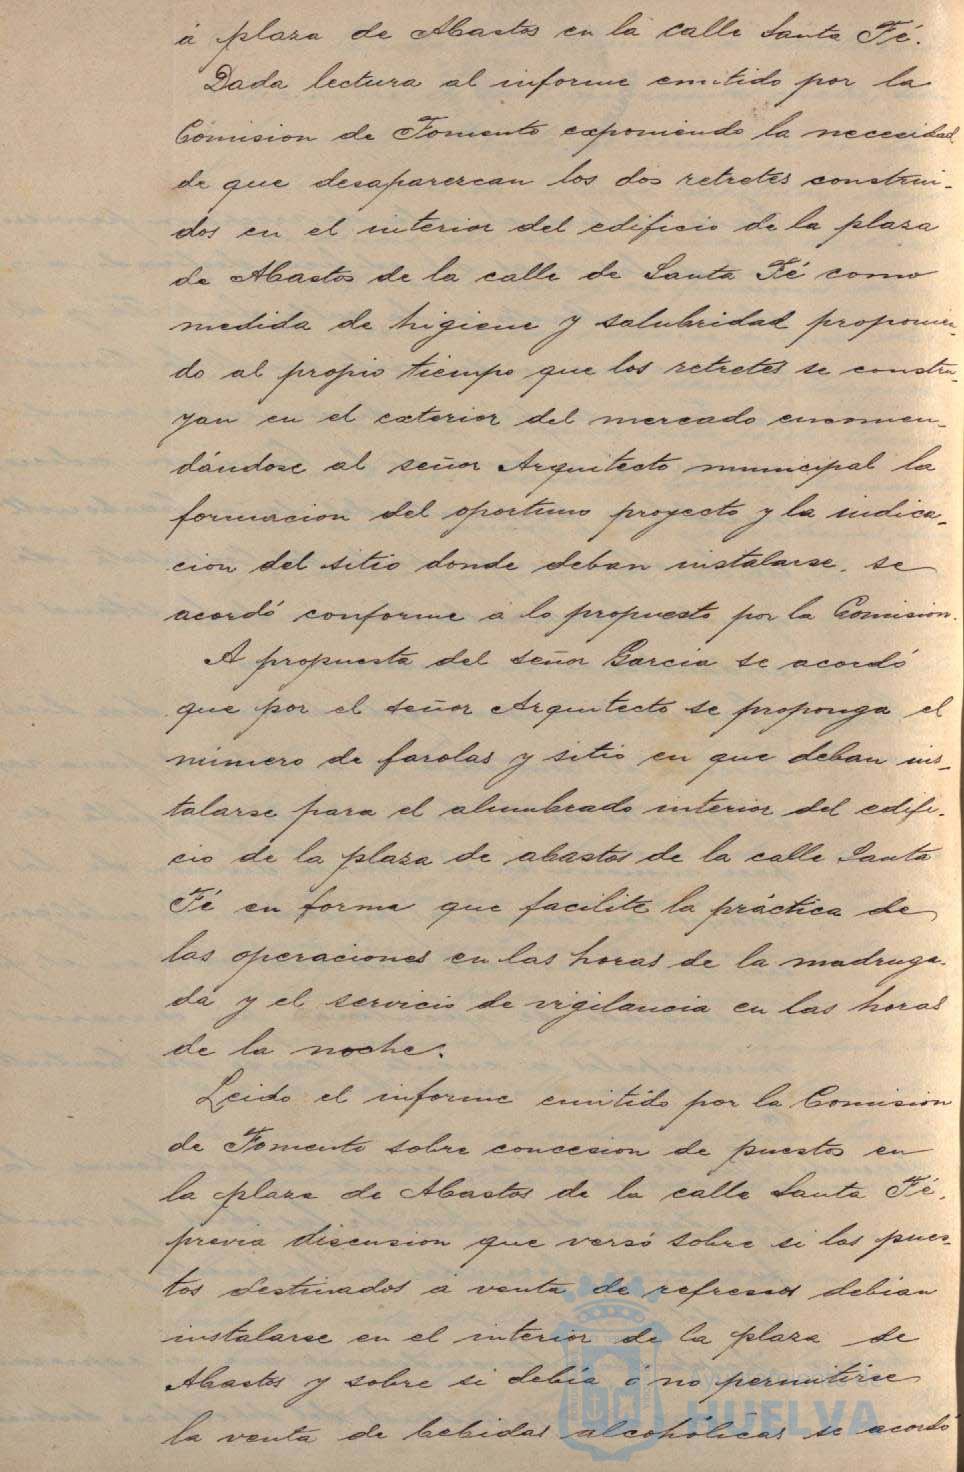 á plaza de Abastos en la calle Santa Fé.
Dada lectura al informe emitido por la
Comision de Fomento exponiendo la necesidad
de que desaparezcan los dos retretes construi-
dos en el interior del edificio de la plaza
de Abastos de la calle de Santa Fé como
medida de higiene y salubridad proponien-
do al propio tiempo que los retretes se constru-
yan en el exterior del mercado encomen-
dándose al señor Arquitecto municipal la
formacion del oportuno proyecto y la indica-
cion del sitio donde deban instalarse, se
acordó conforme á lo propuesto por la Comision.
A propuesta del señor Garcia se acordó
que por el señor Arquitecto se proponga el
número de farolas y sitio en que deban ins-
talarse para el alumbrado interior del edifi-
cio de la plaza de abastos de la calle Santa
Fé en forma que facilite la práctica de
las operaciones en las horas de la madruga-
da y el servicio de vigilancia en las horas
de la noche.
Leido el informe emitido por la Comision
de Fomento sobre concesion de puestos en
la plaza de Abastos de la calle Santa Fé,
previa discusion que versó sobre si los pues-
tos destinados á venta de refrescos debian
instalarse en el interior de la plaza de
Abastos y sobre si debía ó no permitirse
la venta de bebidas alcohólicas se acordó
HUELVA